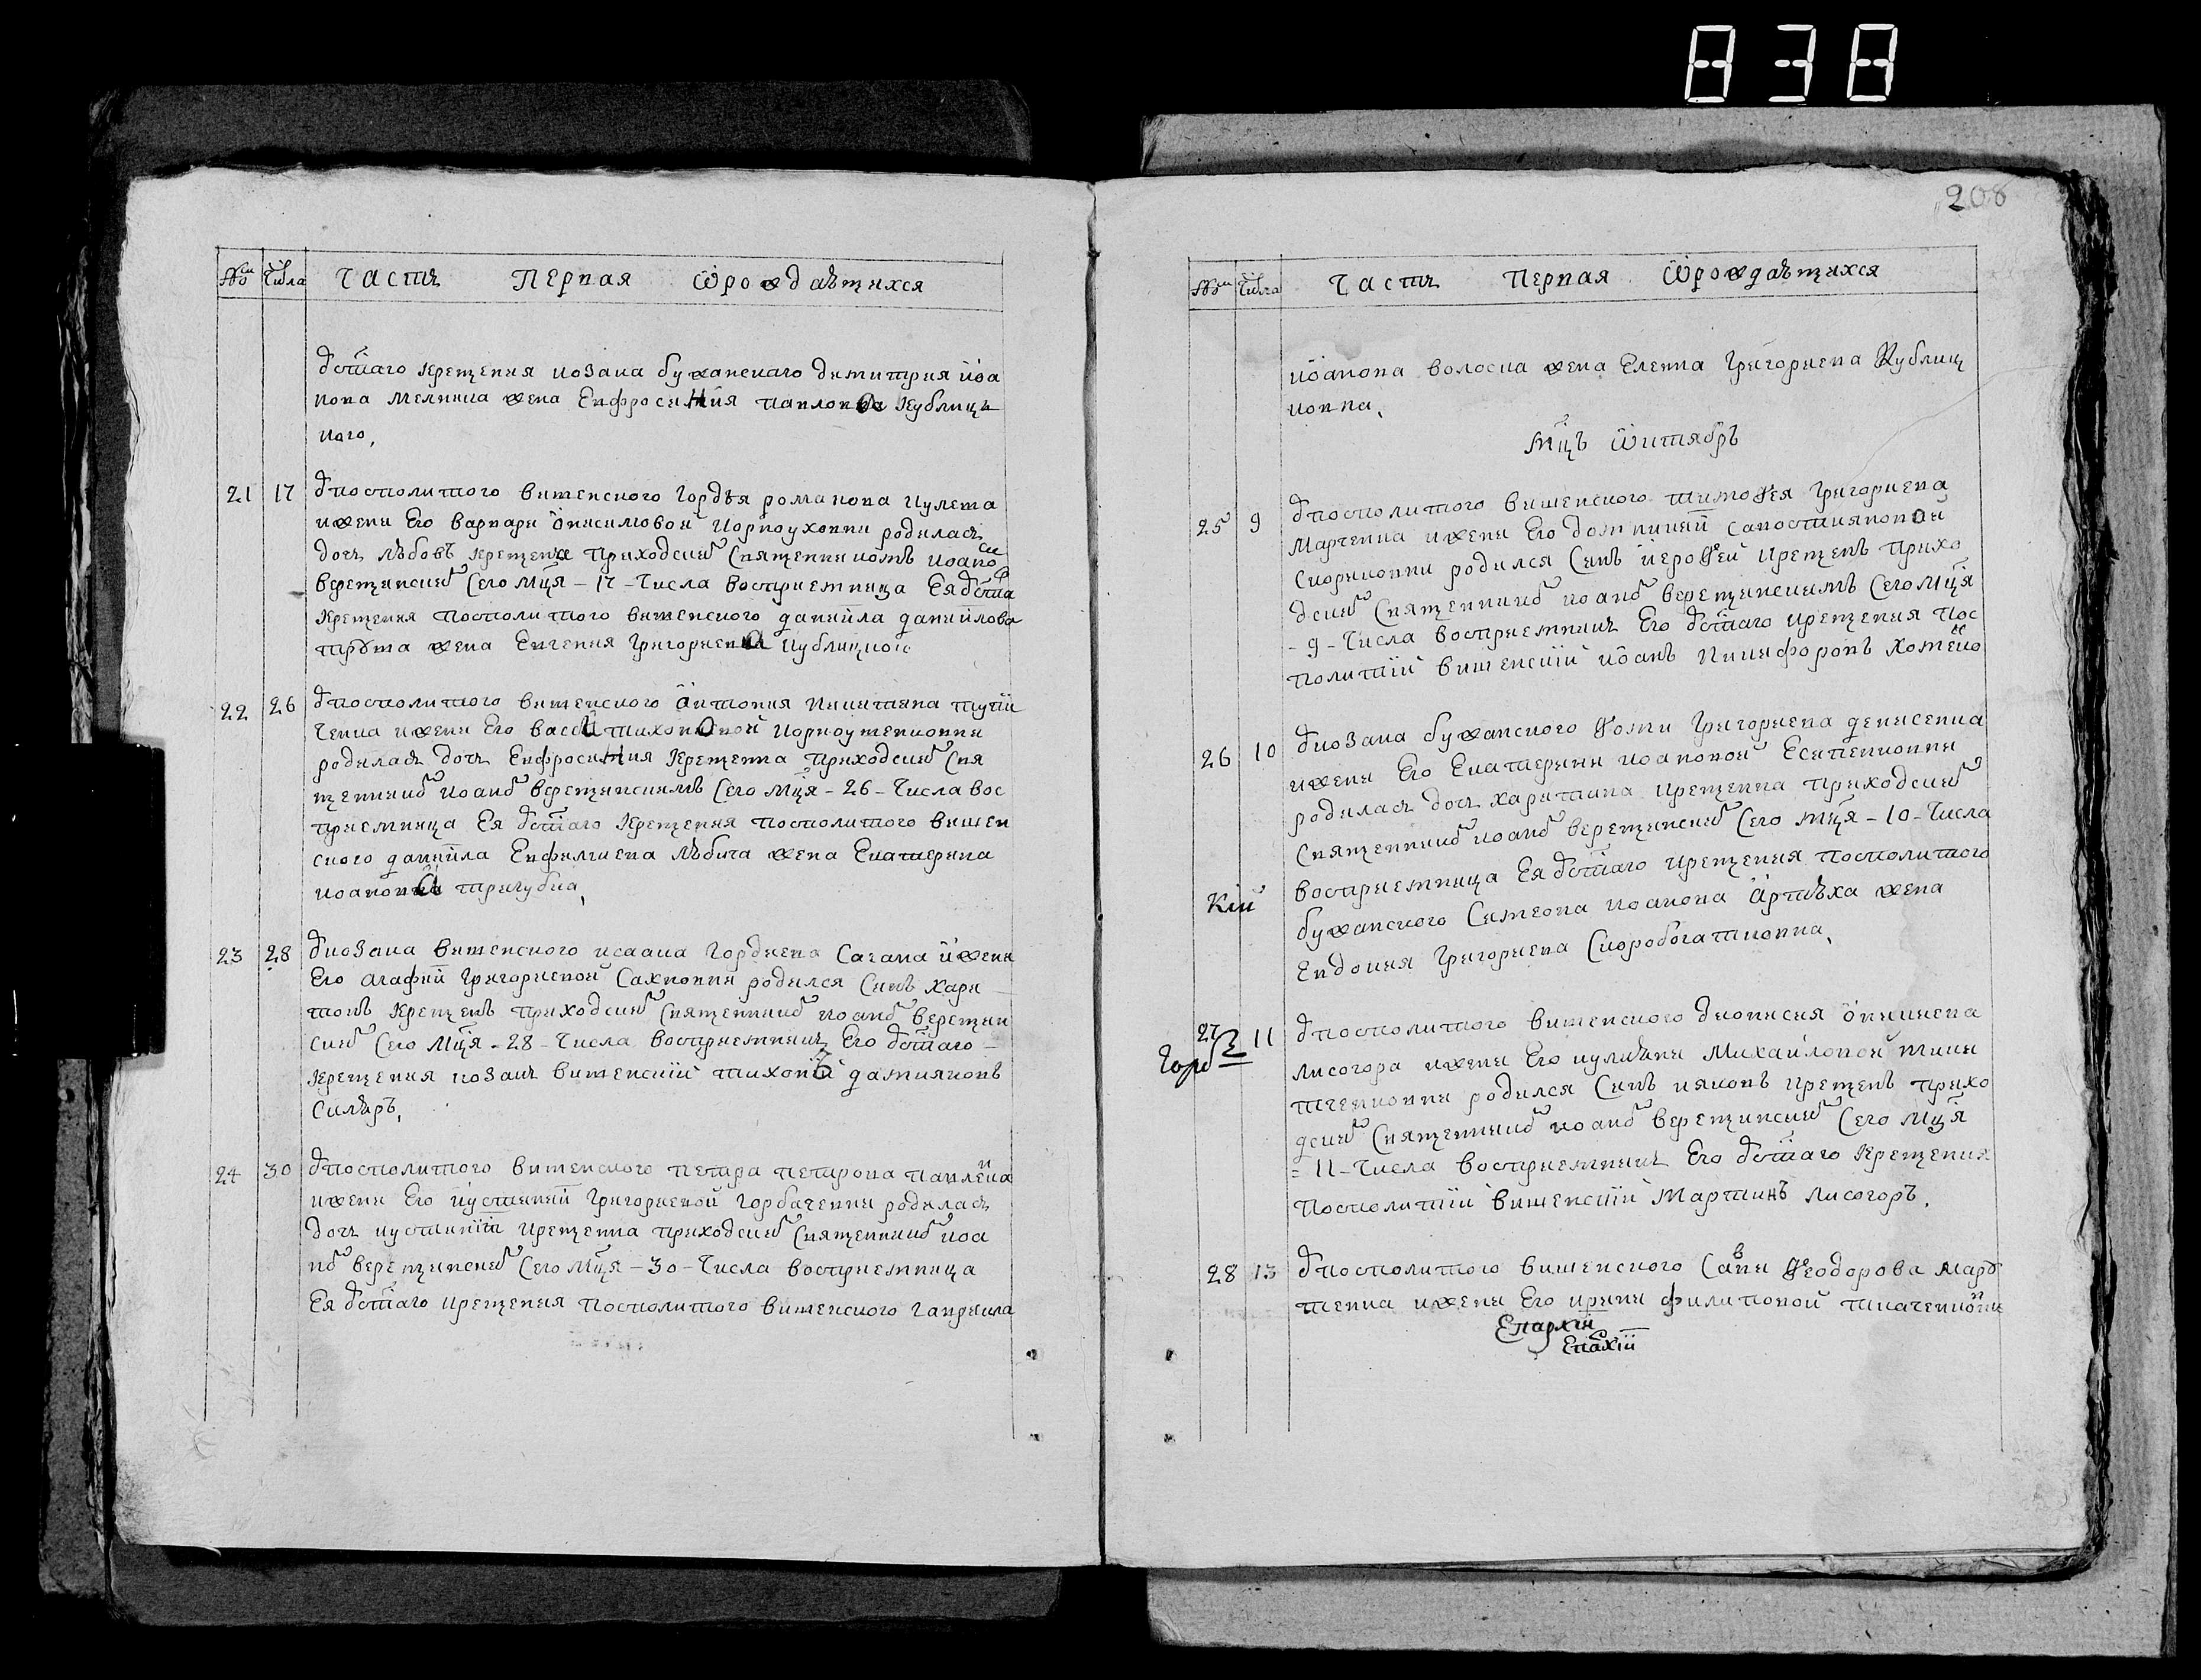 838
№ Числа Часть Первая Ѿрождающихся
Ѿ стаго крещения козака бужанского димитрия иоа
нова мелника жена Евфросиния павлова Кублицъ
кого,
21 17 У посполитого вишенского Гордѣя романова кулета
и жени Его варвари онисимовой Корноуховни родилась
дочь любовъ крещенна приходским священникомъ иоаном
верещинским Сего мця – 17 – Числа восприемница Ея Ѿ ста
крещения посполитого вишенского даниила даниилова
трута жена Евгения Григориева кублицкого
22 26 У посполитого вишенского антония никитина тутій
ченка и жени Его васси тихоновой корноутенковни
родилась дочь Евфросиния крещенна приходским свя
щенником иоаном верещинскимъ Сего мця – 26 – Числа вос
приемница Ея Ѿ стаго крещения посполитого вишен
ского даниила Евфимиева любича жена Екатерина
иоаннова тригубка,
23 28 У козака вишенского исаака Гордиева Сагана и жени
Его агафии Григориевой Сахновни родился Синъ хари
тонъ крещенъ приходским священником иоаном верещин
ским Сего мця – 28 – Числа восприемникъ Его Ѿ стаго –
крещения козакъ вишенскій тихонъ дамияновъ
Скляръ,
24 30 У посполитого вишенского петра петрова павленка
и жени Его иустинии Григориевой Горбаченки родилась
дочь иустиния крещенна приходским священником иоа
ном верещинским Сего мця – 30 – Числа восприемница
Ея Ѿ стаго крещения посполитого вишенского гавриила
208
№ Числа Часть Первая Ѿрождающихся
иоанова волоска жена Елена Григориева Кублиц
ковна,
мцъ Ѡктябръ
25 9 У посполитого вишенского тимофея Григориева
марченка и жени Его домникии Савостияновой
Скориковни родился Синъ иерофей крещенъ прихо
дским священником иоаном верещинскимъ Сего мця
– 9 – Числа восприемникъ Его Ѿ стаго крещения пос
политій вишенскій иоанъ никифоровъ хоменко
26 10 У козака бужанского Фоми Григориева денисенка
и жени Его Екатерини иоановой Есипенковни
родилась дочь харитина крещенна приходским
священником иоаном верещинским Сего мця – 10 – Числа
восприемница Ея Ѿ стаго крещения посполитого
Кій
бужанского Симеона иоанова артюха жена
Евдокия Григориева Скоробогатковна,
27 11 У посполитого вишенского дионисия оникиева
Горб
лисогора и жени Его иулиянии Михайловой тими
тченковни родился Синъ иаковъ крещенъ прихо
дским священником иоаном верещинским Сего мця
– 11 – Числа восприемникъ Его Ѿ стаго крещения
посполитій вишенскій мартинъ лисогоръ.
28 13 У посполитого вишенского Сави Феодорова мару
щенка и жени Его ирини филиповой ткаченковни
Епархіи
Епархіи